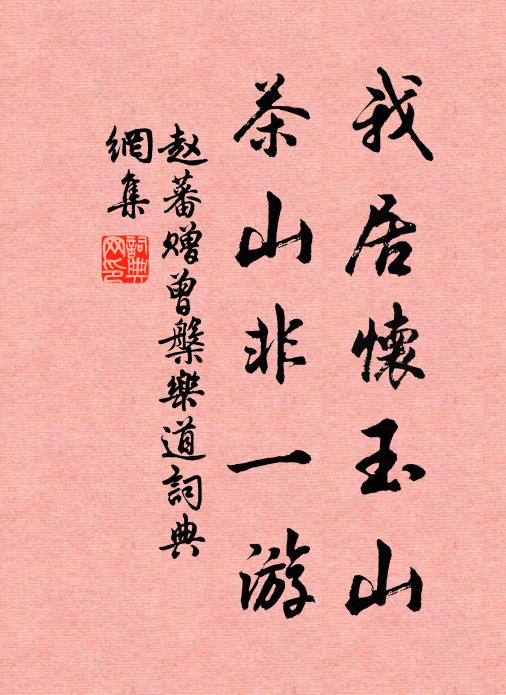 我居懷玉山
茶山非一游
赵蕃赠曾槃樂道詞典
網集
詞典
网印